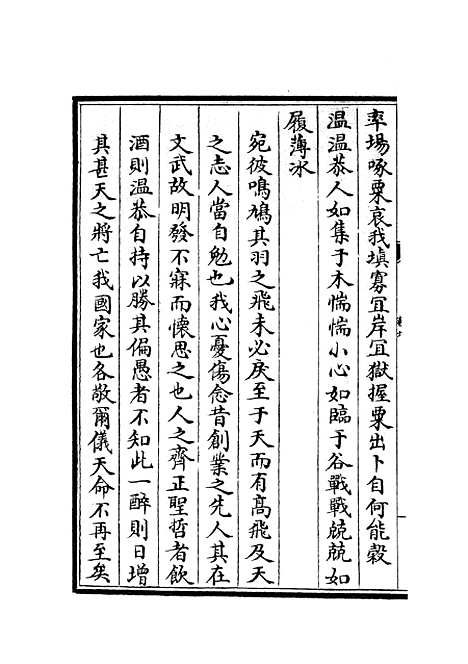 率場啄粟哀我填寡宜岸宜獄握粟出卜自何能穀
温温恭人如集于木惴惴小心如臨于谷戰戰兢兢如
履薄冰
宛彼鳴鳩其羽之飛未必戾至于天而有高飛及天
之志人當自勉也我心憂傷念昔創業之先人其在
文武故明發不寐而懷思之也人之齊正聖哲者飲
酒則温恭自持以勝其偏愚者不知此一醉則日增
其甚天之將亡我國家也各敬爾儀天命不再至矣